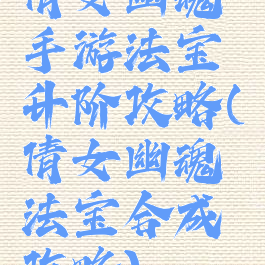 倩女幽魂
手游法宝
升阶攻略(
倩女幽魂
法宝合成
攻略)